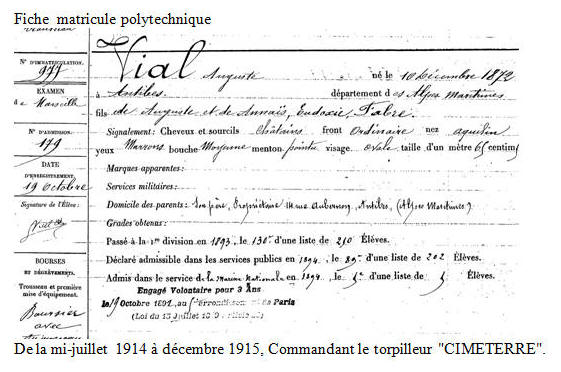 Fiche matricule polytechnique
N° D'IMMATRICULATION
977
EXAMEN
de Marseille
N° D'ADMISSION
179
DATE
D'ENREGISTREMENT
19 octobre
Signature de l'Élève:
Vial
BOURSES
ET DÉGRÈVEMENTS.
Trousseau et première
mise d'équipement.
Boursier
avec
Vial
Auguste né le 10 Décembre 1872
à Antibes département des Alpes Maritimes
fils de Auguste et de Annaïs, Eudoxie, Fabre.
Signalement: Cheveux et sourcils Châtains front Ordinaire nez aquilin
yeux Marrons bouche Moyenne menton pointu visage ovale taille d'un mètre 65 centim
Marques apparentes:
Services militaires:
Domicile des parents: Son père, Propriétaire rue Aubernon, Antibes, (Alpes Maritimes)
Grades obtenus:
Passé à la 1re division en 1893, le 130e d'une liste de 210 Élèves.
Déclaré admissible dans les services publics en 1894, le 89e d'une liste de 202 Élèves.
Admis dans le service de la Marine Nationale en 1894, le d'une liste de Élèves.
Engagé Volontaire pour 3 Ans
le 19 Octobre 1892, au Paris
(Loi du Juillet
De la mi-juillet 1914 à décembre 1915, Commandant le torpilleur "CIMETERRE".